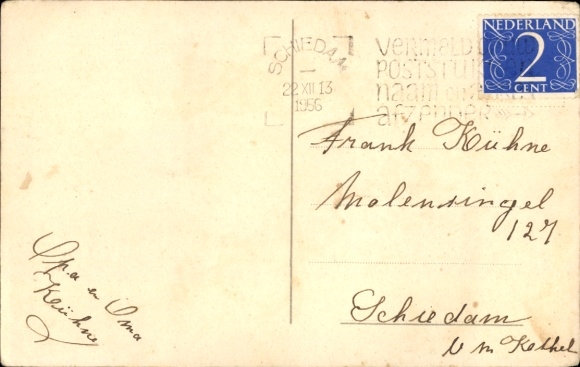 SCHIEDAM
22 XII 13
1956
VERMELD
POSTSTUK
NAAM en
AFZENDER
NEDERLAND
2
CENT
Frank Kühne
Molensingel
127
Schiedam
v m Kethel
Opa en Oma
Kühne